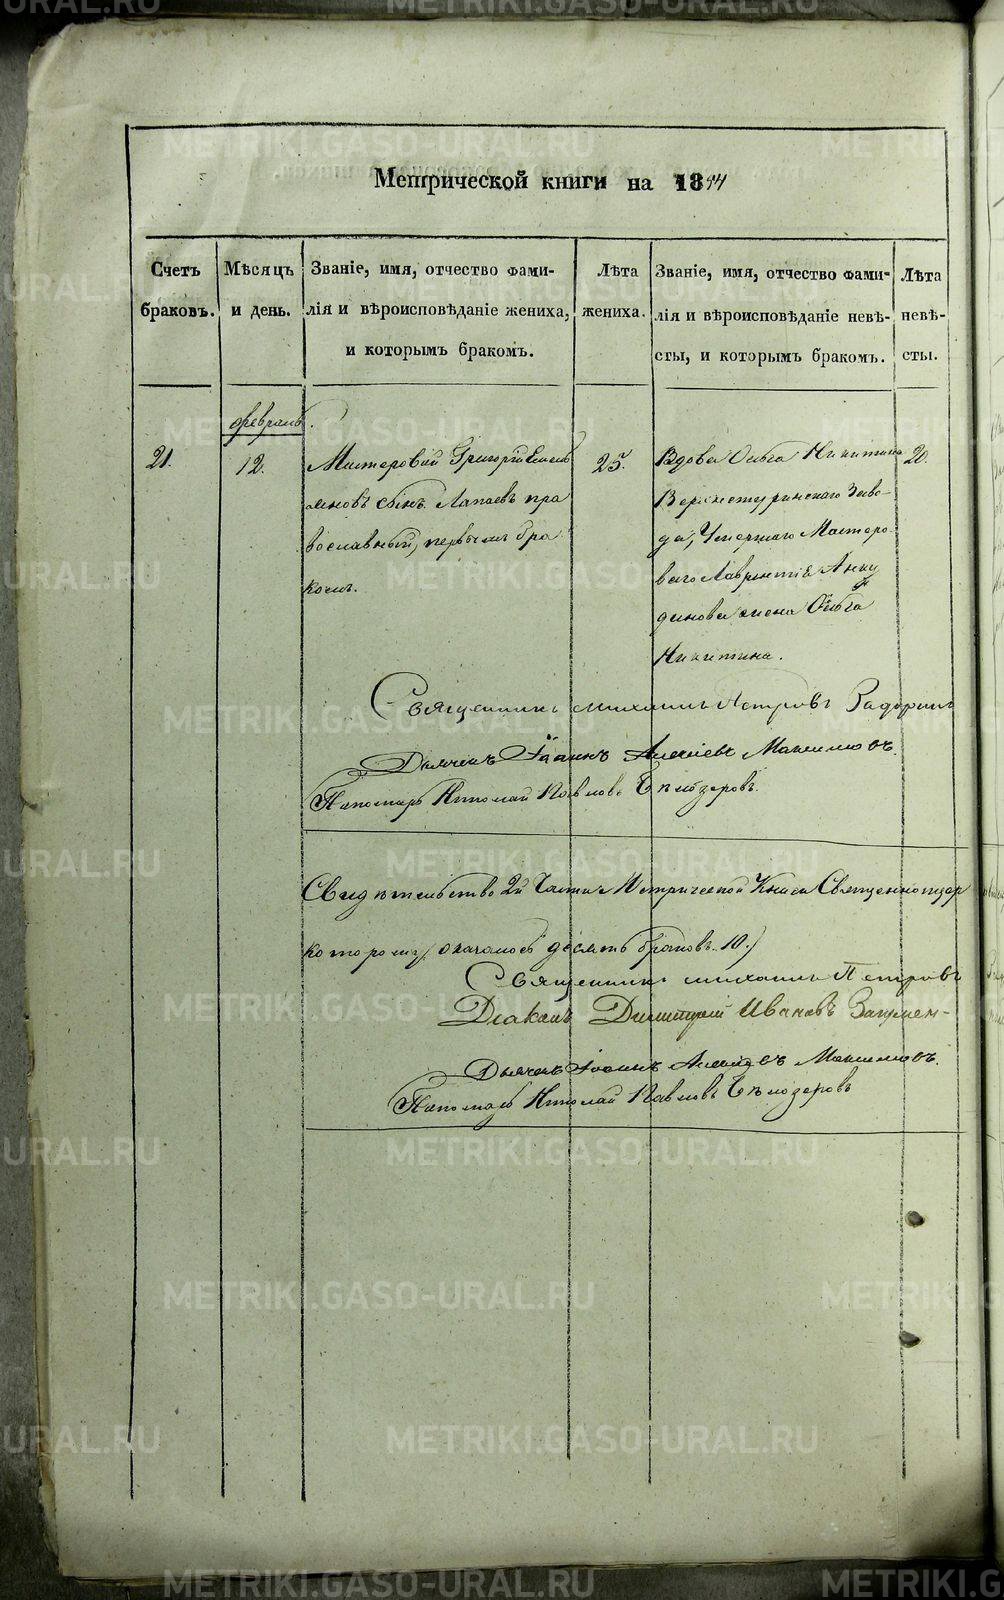 Метрической книги на 1844
Счетъ браковъ.
Мѣсяцъ и день.
Званіе, имя, отчество фами-
лія и вѣроисповѣданіе жениха,
и которымъ бракомъ.
Лѣта
жениха.
Званіе, имя, отчество фами-
лія и вѣроисповѣданіе невѣ-
сты, и которымъ бракомъ.
Лѣта
невѣ-
сты.
февраль.
21.
12.
Мастеровой Григорій Емель
яновъ сынъ Лапаевъ пра
вославный, первымъ бра
комъ.
25.
Вдова Ольга Никитина
Верхнетуринскаго Заво-
да, Умершаго Мастеро
ваго Лаврентія Анку
динова жена Ольга
Никитина.
20.
Священникъ Михаилъ Петровъ
Дьячекъ Іоаннъ Алексѣевъ Максимовъ.
Пономарь Николай Павловъ Бѣлозеровъ.
Свидѣтельство 2й Части Метрической Книги Священноцер
которому оказалось десять браковъ. 10.)
Священникъ Михаилъ Петровъ
Діаконъ Димитрій Ивановъ
Дьячекъ Іоаннъ Алексѣевъ Максимовъ.
Пономарь Николай Павловъ Бѣлозеровъ
METRIKI.GASO-URAL.RU